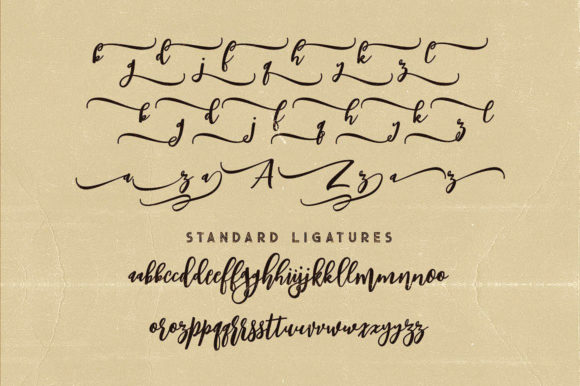 b g d j f q h y k z l
b g d j f q h y k z l
a z a A Z z a z
STANDARD LIGATURES
aabbccddeeffgghhiijjkkllmmnnoo
orozppqqrrssttuuvvwwxxyyzz